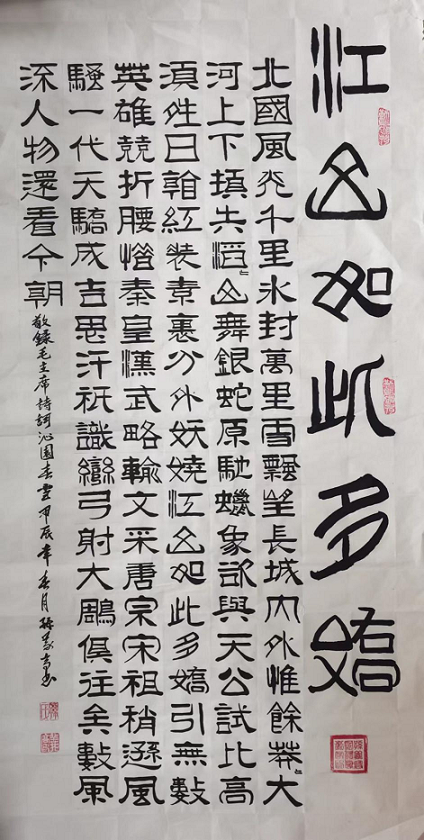 江山如此多嬌
北國風光千里氷封萬里雪飄望長城內外惟餘莽〻大
河上下頓失滔〻山舞銀蛇原馳蠟象欲與天公試比高
須晴日看紅裝素裹分外妖嬈江山如此多嬌引無數
英雄競折腰惜秦皇漢武略輸文采唐宗宋祖稍遜風
騷一代天驕成吉思汗祇識彎弓射大鵰俱往矣數風
流人物還看今朝
敬錄毛主席詩詞沁園春雪甲辰年春月